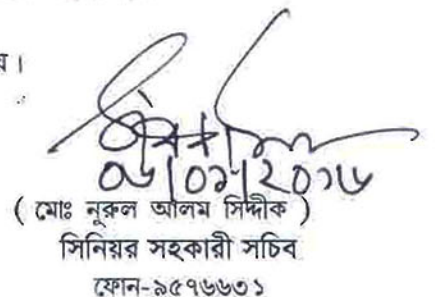 য়।
০৬|০১|২০১৬
( মোঃ নূরুল আলম সিদ্দীক )
সিনিয়র সহকারী সচিব
ফোন-৯৫৭৬৬৩১